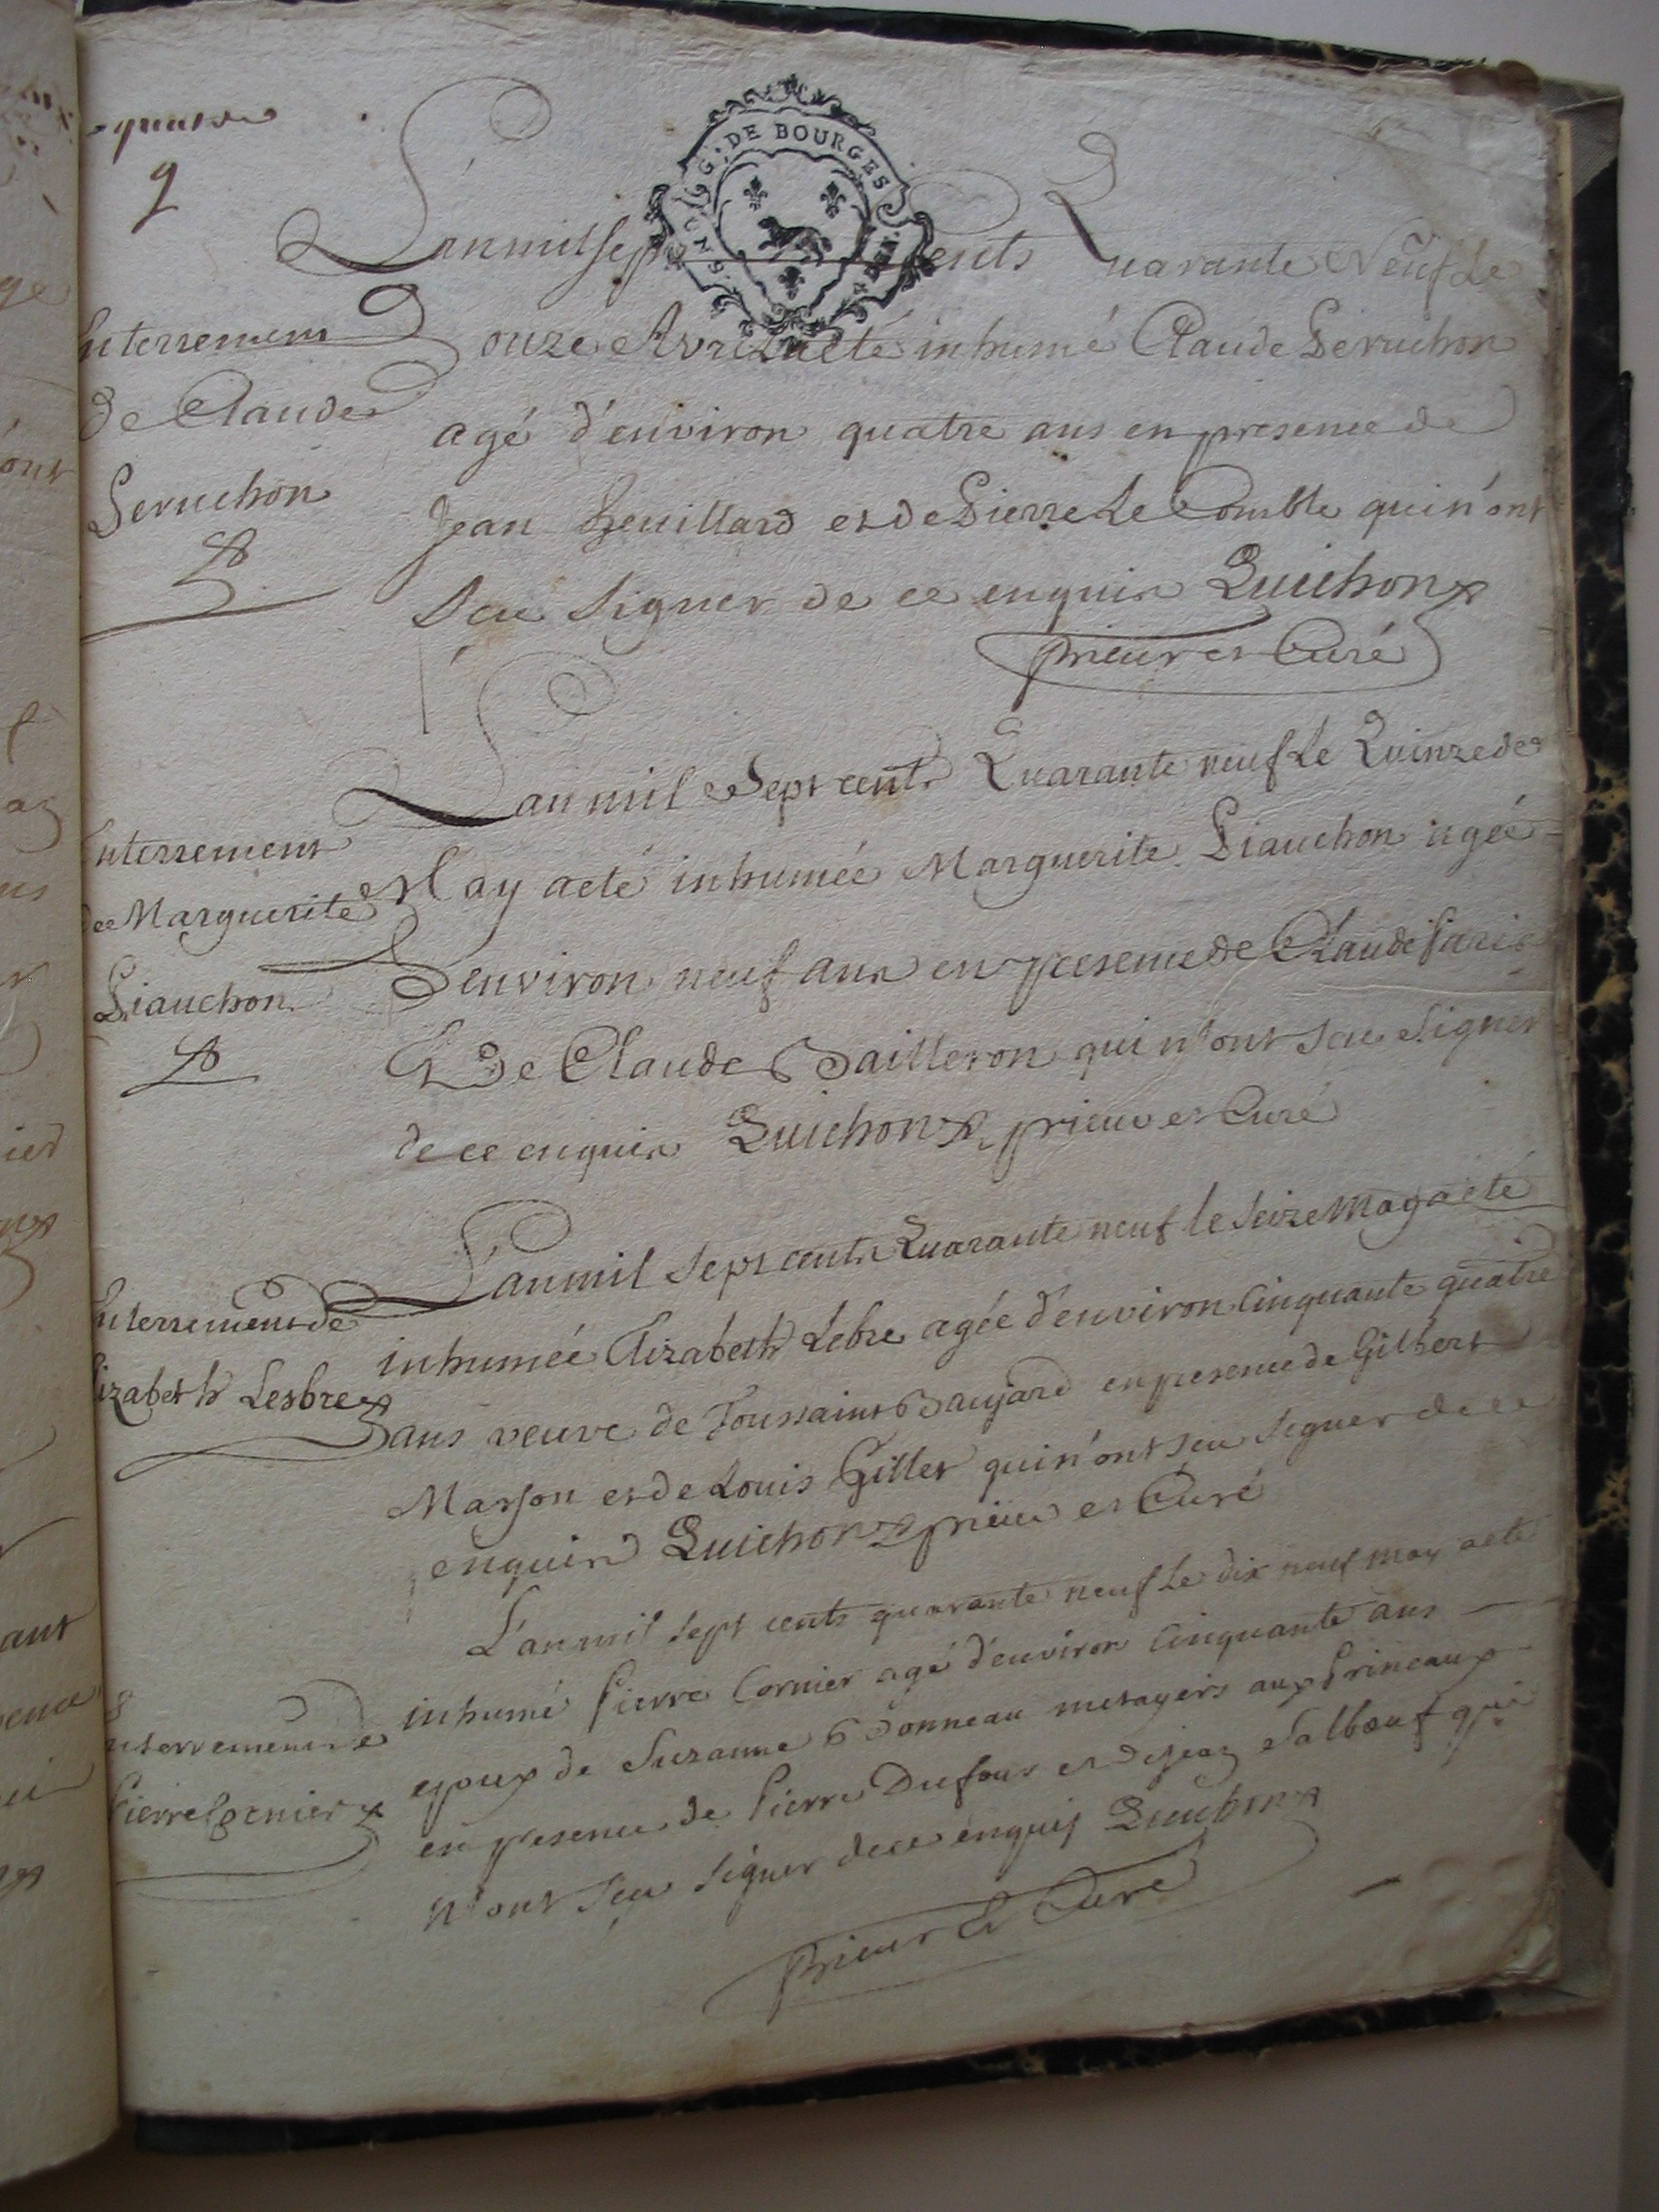 quatre
G: DE BOURGES
L'an mil sept cents Quarante Neuf Le
Enterrement
Douze Avril a eté inhumé Claude Peruchon
de Claude
agé d'environ quatre ans en presence de
Peruchon
Jean et de Pierre Le Comble qui n'ont
Sçu Signer de ce enquis Quichon
prieur et Curé
L'an mil Sept cents Quarante neuf Le Quinze de
Enterrement
May a eté inhumée Marguerite Piauchon agée
de Marguerite
D'environ neuf ans en presence de Claude Paris
Piauchon
Et De Claude Bailleron qui n'ont Sçu Signer
de ce enquis Quichon prieur et Curé
L'an mil Sept cents Quarante neuf le Seize May a eté
Enterrement de
inhumée Elizabeth Lebre agée d'environ Cinquante quatre
Elizabeth Lesbre
ans veuve de Toussaint Baujard en presence de Gilbert
Masson et de Louis Gillet qui n'ont sçu Signer de ce
enquis Quichon prieur et Curé
L'an mil Sept cents quarante neuf Le dix neuf may a eté
inhumé Pierre Cornier agé d'environ Cinquante ans
Enterrement de
epoux de Suzanne Bonneau metayers aux Princeaux
Pierre Cornier
en presence de Pierre Dufour et de jean Salboeuf qui
N'ont Sçu Signer de ce enquis Quichon
Prieur Et Curé